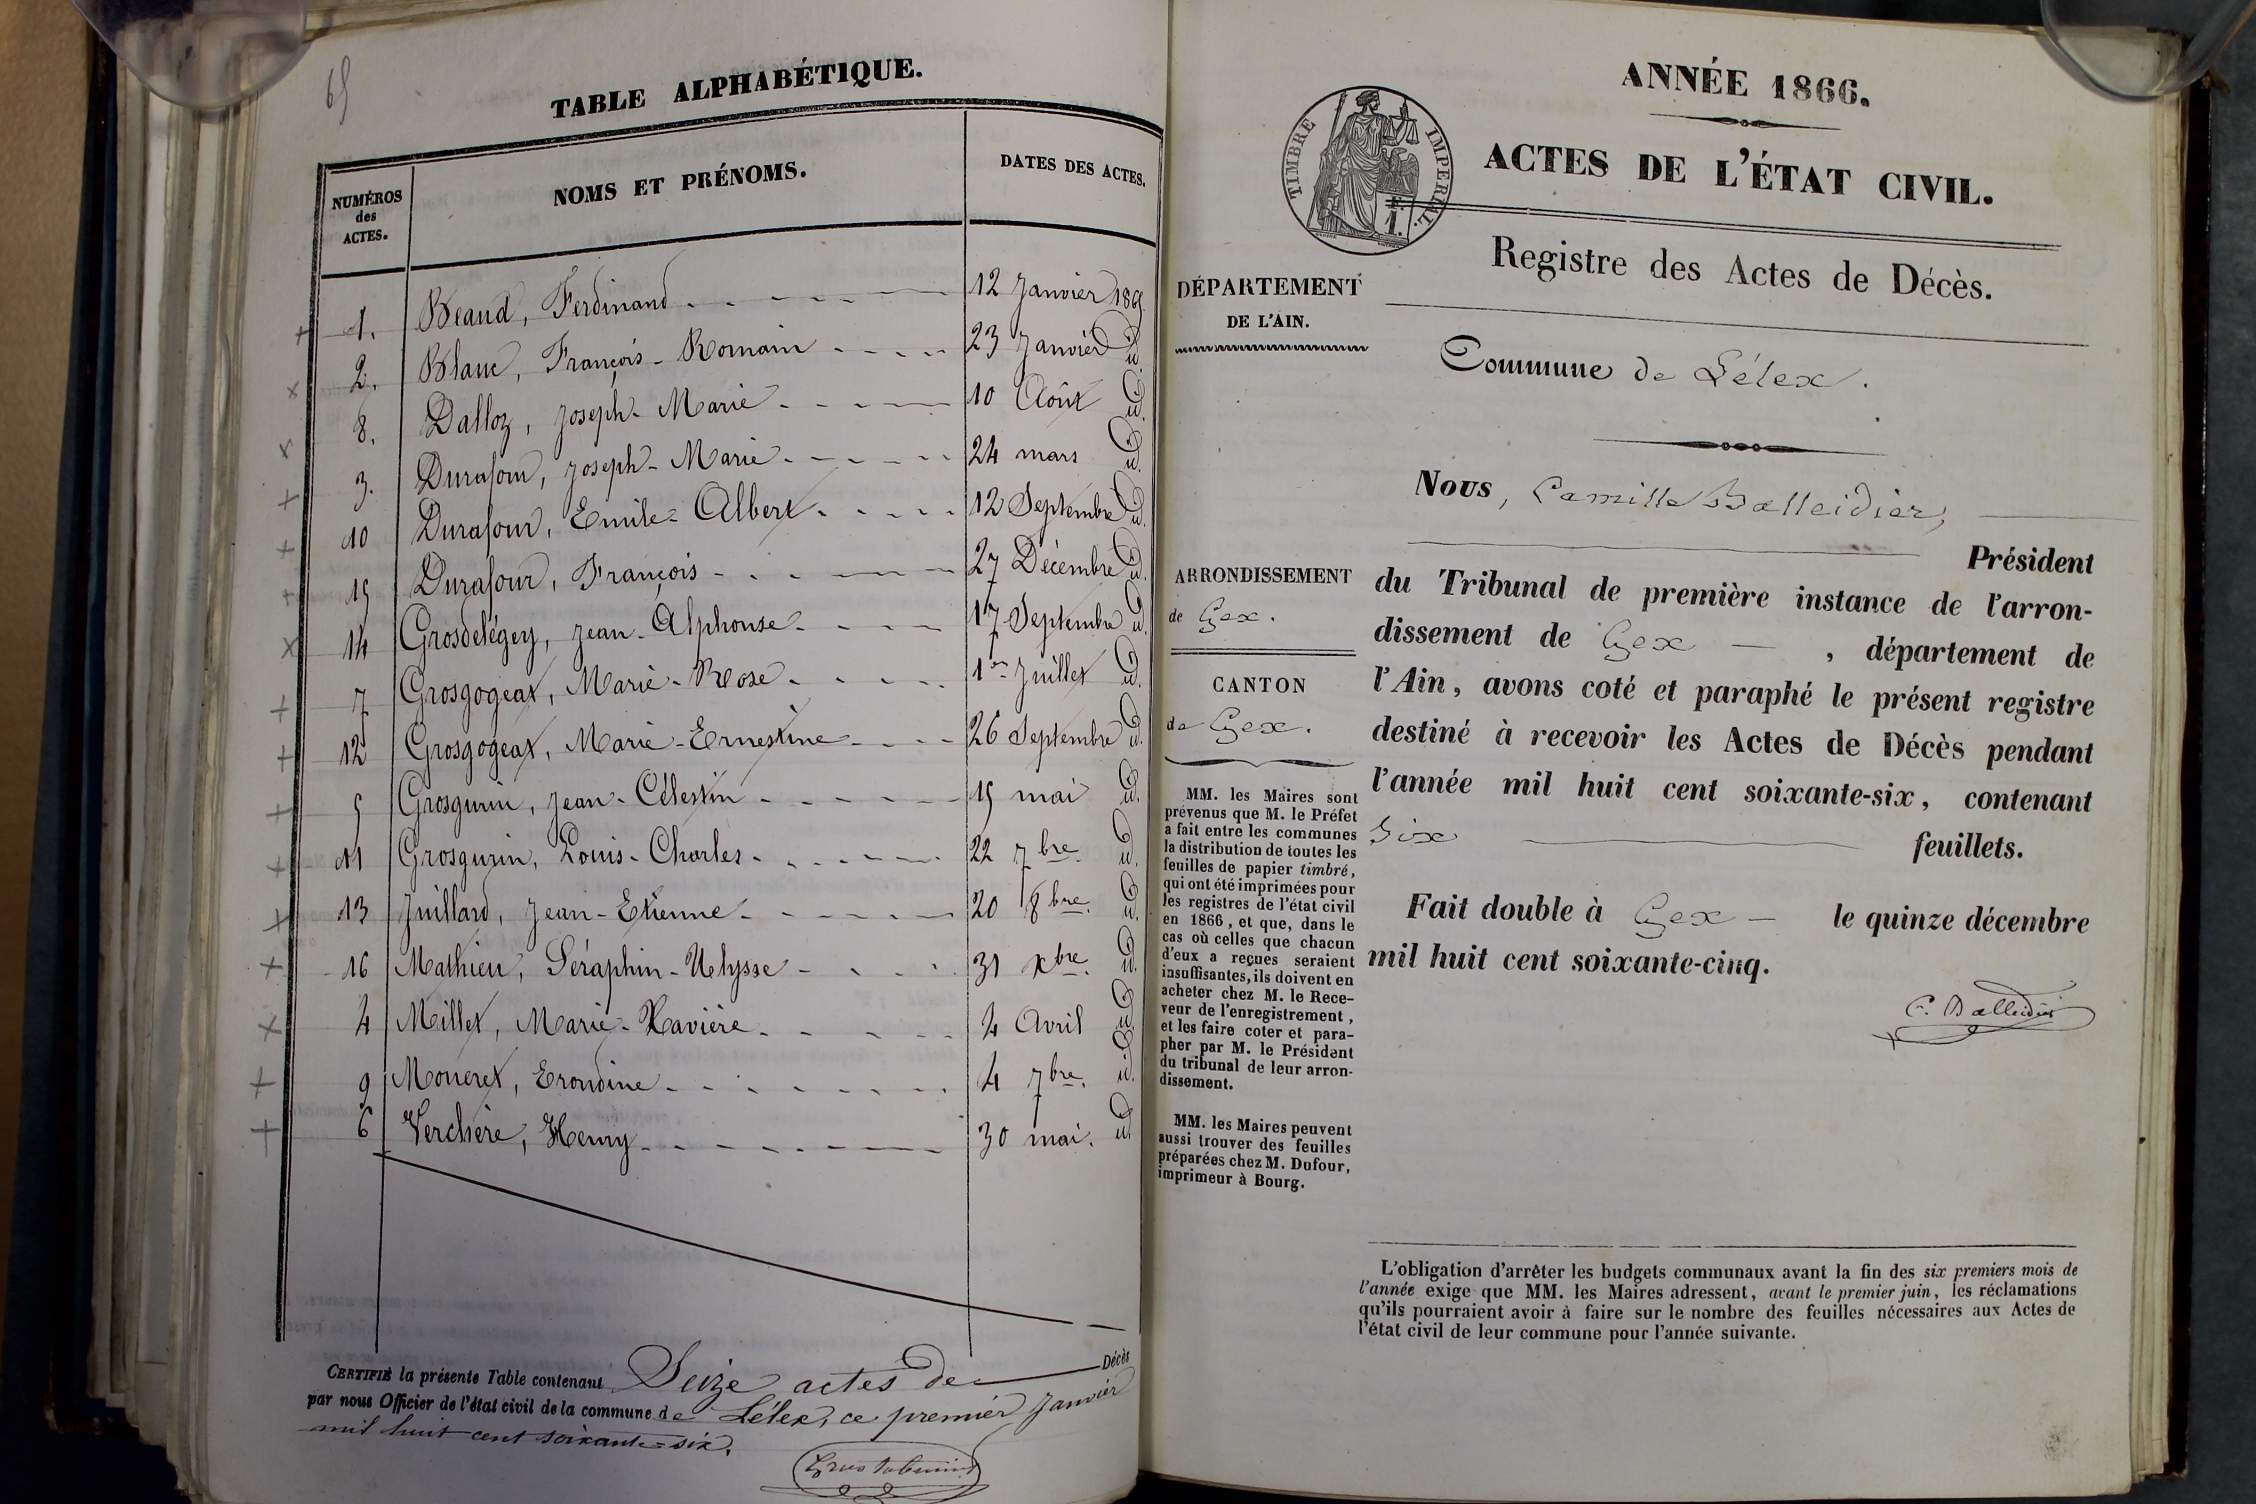 65
TABLE ALPHABÉTIQUE.
NUMÉROS
des
ACTES.
NOMS ET PRÉNOMS.
DATES DES ACTES.
1. Beaud, Ferdinand 12 Janvier 1865
2. Blanc, François-Romain 23 Janvier id.
8. Dalloz, Joseph-Marie 10 Août id.
3. Durafour, Joseph-Marie 24 mars id.
10 Durafour, Emile-Albert 12 Septembre id.
15 Durafour, François 27 Décembre id.
14 Grosdelégey, Jean-Alphonse 17 Septembre id.
7 Grosgogeat, Marie-Rose 1er Juillet id.
12 Grosgogeat, Marie-Ernestine 26 Septembre id.
5 Grosgurin, Jean-Célestin 15 mai id.
11 Grosgurin, Louis-Charles 22 7bre id.
13 Juillard, Jean-Etienne 20 8bre id.
16 Mathieu, Séraphin-Ulysse 31 xbre id.
4 Millet, Marie-Xavière 4 Avril id.
9 Moneret, Erondine 4 7bre id.
6 Verchère, Henry 30 mai. id.
CERTIFIÉ la présente Table contenant Seize actes de Décès
par nous Officier de l'état civil de la commune de Lélex, ce premier Janvier
mil huit cent soixante-six.
ANNÉE 1866.
TIMBRE IMPERIAL.
F.
1.
ACTES DE L'ÉTAT CIVIL.
Registre des Actes de Décès.
DÉPARTEMENT
DE L'AIN.
Commune de Lélex.
ARRONDISSEMENT
de Gex.
CANTON
de Gex.
MM. les Maires sont
prévenus que M. le Préfet
a fait entre les communes
la distribution de toutes les
feuilles de papier timbré,
qui ont été imprimées pour
les registres de l'état civil
en 1866, et que, dans le
cas où celles que chacun
d'eux a reçues seraient
insuffisantes, ils doivent en
acheter chez M. le Rece-
veur de l'enregistrement,
et les faire coter et para-
pher par M. le Président
du tribunal de leur arron-
dissement.
MM. les Maires peuvent
aussi trouver des feuilles
préparées chez M. Dufour,
imprimeur à Bourg.
Nous, Camille Balleidier,
Président
du Tribunal de première instance de l'arron-
dissement de Gex, département de
l'Ain, avons coté et paraphé le présent registre
destiné à recevoir les Actes de Décès pendant
l'année mil huit cent soixante-six, contenant
Six feuillets.
Fait double à Gex le quinze décembre
mil huit cent soixante-cinq.
C. Balleidier
L'obligation d'arrêter les budgets communaux avant la fin des six premiers mois de
l'année exige que MM. les Maires adressent, avant le premier juin, les réclamations
qu'ils pourraient avoir à faire sur le nombre des feuilles nécessaires aux Actes de
l'état civil de leur commune pour l'année suivante.